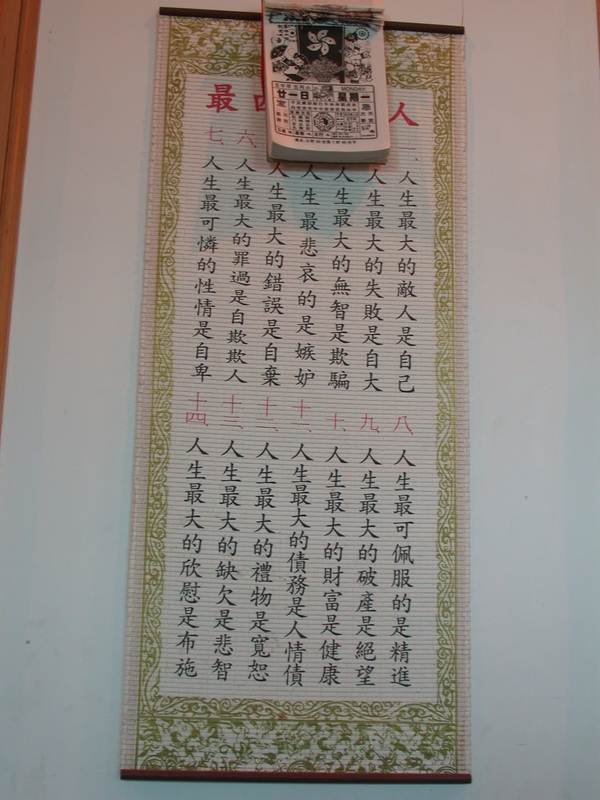 人
四
最
MONDAY
廿一日
星期一
一、人生最大的敵人是自己
人生最大的失敗是自大
人生最大的無智是欺騙
人生最悲哀的是嫉妒
人生最大的錯誤是自棄
六、人生最大的罪過是自欺欺人
七、人生最可憐的性情是自卑
八、人生最可佩服的是精進
九、人生最大的破產是絕望
十、人生最大的財富是健康
十一、人生最大的債務是人情債
十二、人生最大的禮物是寬恕
十三、人生最大的缺欠是悲智
十四、人生最大的欣慰是布施